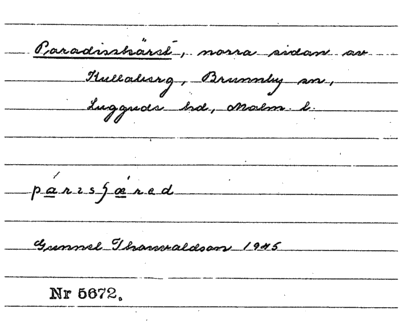 Paradisskäret, norra sidan av
Kullaberg, Brunnby sn,
Luggude hd, Malm. l.
Gunnel Thorvaldson 1945
Nr 5672.